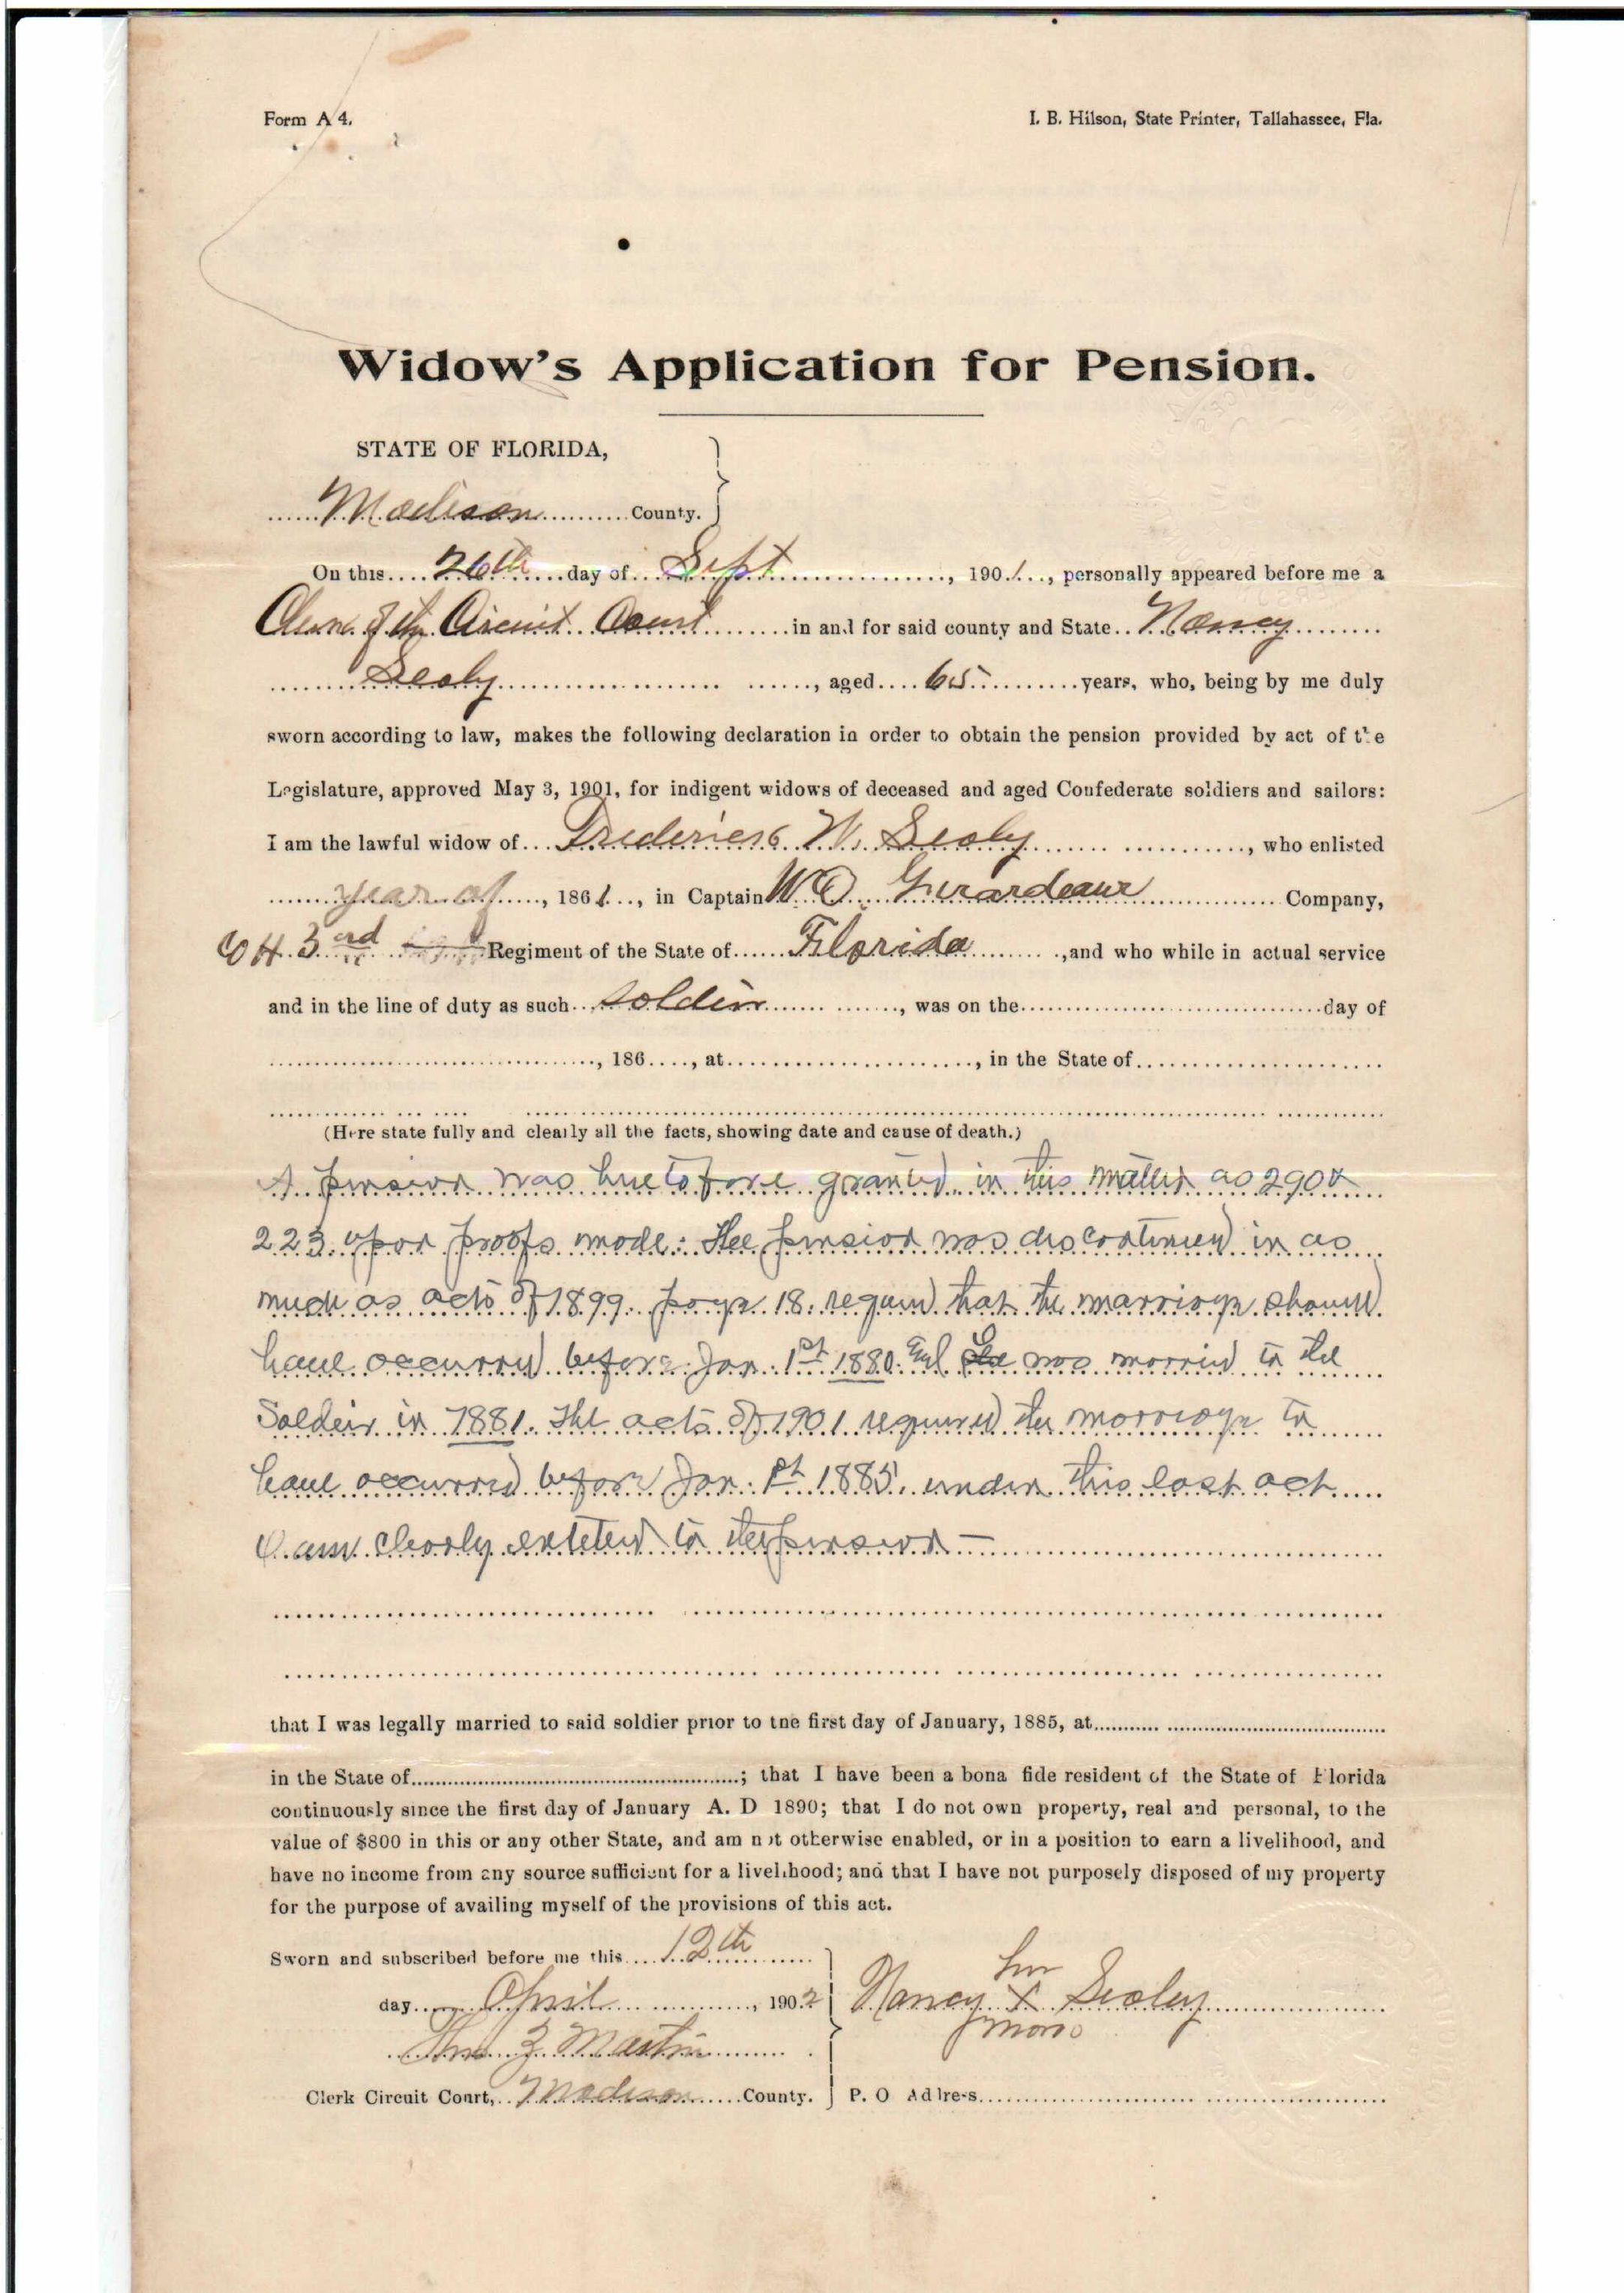 Form A 4.
I. B. Hilson, State Printer, Tallahassee, Fla.
Widow's Application for Pension.
STATE OF FLORIDA,
Madison County.
On this 26th day of Sept, 1901, personally appeared before me a
Clerk of the Circuit Court in and for said county and State Nancy
Sealy, aged 65 years, who, being by me duly
sworn according to law, makes the following declaration in order to obtain the pension provided by act of the
Legislature, approved May 3, 1901, for indigent widows of deceased and aged Confederate soldiers and sailors:
I am the lawful widow of Frederick W. Sealy, who enlisted
year of, 1861, in Captain W O Girardeaux Company,
Co H. 3rd Regiment of the State of Florida, and who while in actual service
and in the line of duty as such soldier, was on the day of
, 186 , at , in the State of
(Here state fully and clearly all the facts, showing date and cause of death.)
A pension was heretofore granted in this matter as 290 &
223 upon proofs made: The pension was discontinued in as
much as acts of 1899 page 18 required that the marriage should
have occurred before Jan. 1st 1880. was married to the
Soldier in 1881. The acts of 1901 required the marriage to
have occurred before Jan. 1st 1885. under this last act
I am clearly entitled to the pension —
that I was legally married to said soldier prior to the first day of January, 1885, at
in the State of ; that I have been a bona fide resident of the State of Florida
continuously since the first day of January A. D 1890; that I do not own property, real and personal, to the
value of $800 in this or any other State, and am not otherwise enabled, or in a position to earn a livelihood, and
have no income from any source sufficient for a livelihood; and that I have not purposely disposed of my property
for the purpose of availing myself of the provisions of this act.
Sworn and subscribed before me this 12th
day April, 1902
her
Nancy X Sealey
mark
Martin
Clerk Circuit Court, Madison County.
P. O Address